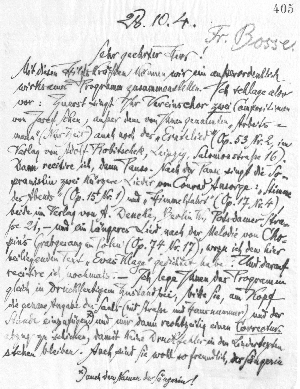 405
28.10.4.
Fr. Bosse
Sehr geehrter Herr!
Mit diesen Hilfskräften können wir ein außerordentlich
wirksames Programm zusammenstellen. Ich schlage also
vor: Zuerst singt Ihr Vereinschor zwei Compositionen
von Josef Scheu, außer dem von Ihnen genannten „Arbeits-
auch noch das „Erntelied" (Op. 53 Nr. 2, im
Verlag von Adolf Robitschek, Leipzig, Salomonstraße 16).
Dann recitire ich, dann Pause. Nach der Pause singt die So-
pranistin zwei kürzere Lieder von Conrad Ansorge: „Stimme
des Abends" (Op. 15, Nr. 1) und „Himmelfahrt" (Op. 17, Nr. 4)
beide im Verlag von Berlin Potsdamer Stra-
ße 21, – und ein längeres Lied nach der Melodie von Cho-
pins (Op. 74 Nr. 17), wozu ich den hier
beiliegenden Text gedichtet habe. Und darauf
recitire ich nochmals. – Ich lege Ihnen das Programm
gleich in druckfertigem Zustand bei, bitte Sie, am Kopf
die genaue Angabe des Saals (mit Straße und Hausnummer) und der
Stunde einzufügen und mir dann rechtzeitig einen Correctur-
abzug zu schicken, damit keine Druckfehler in den Liedertexten
stehen bleiben. Auch sind Sie wohl so freundlich, der Sängerin
auch den Namen der Sängerin!